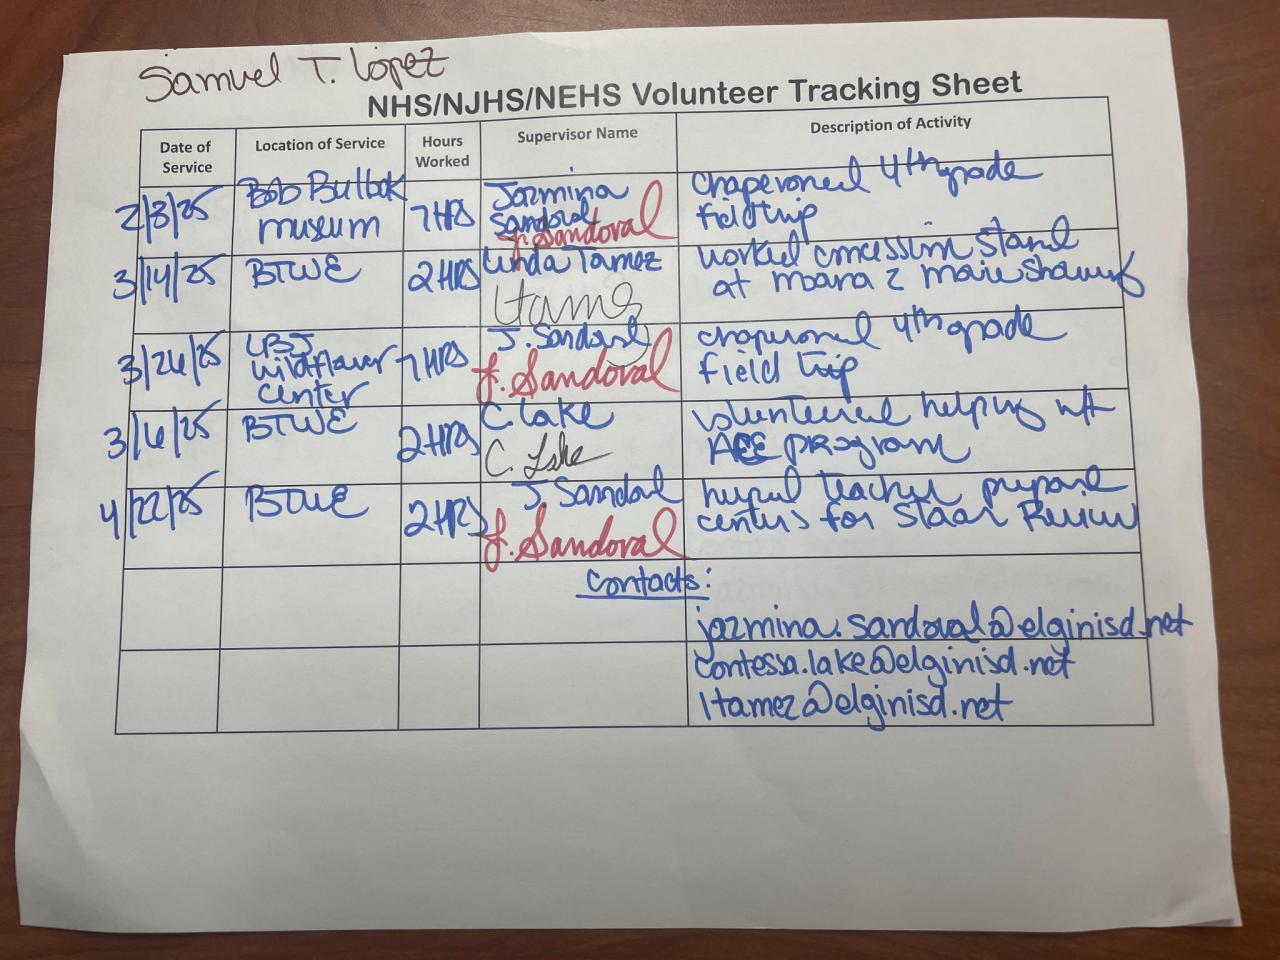 Samuel T. Lopez
NHS/NJHS/NEHS Volunteer Tracking Sheet
Date of Service
Location of Service
Hours Worked
Supervisor Name
Description of Activity
2/3/25
Bob Bullok
museum
7 HRS
Jazmina
Sandoval
J. Sandoval
chaperoned 4th grade
field trip
3/14/25
BTWE
2 HRS
Linda Tamez
worked concession stand
at moana 2 movie showing
3/26/25
LBJ
wildflower
center
7 HRS
J. Sandoval
J. Sandoval
chaperoned 4th grade
field trip
3/6/25
BTWE
2 HRS
C. Lake
C. Lake
volunteered helping w/
ACE program
4/22/25
BTWE
2 HRS
J. Sandoval
J. Sandoval
helped teacher prepare
centers for Staar Review
Contacts:
jazmina.sandoval@elginisd.net
contessa.lake@elginisd.net
ltamez@elginisd.net